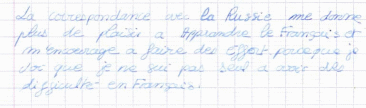 La correspondance avec la Russie me donne
plus de plaisir a Apprendre le Français et
m'encourage a faire des effort parceque je
voi que je ne sui pas seul a avoir des
difficulté en Français.